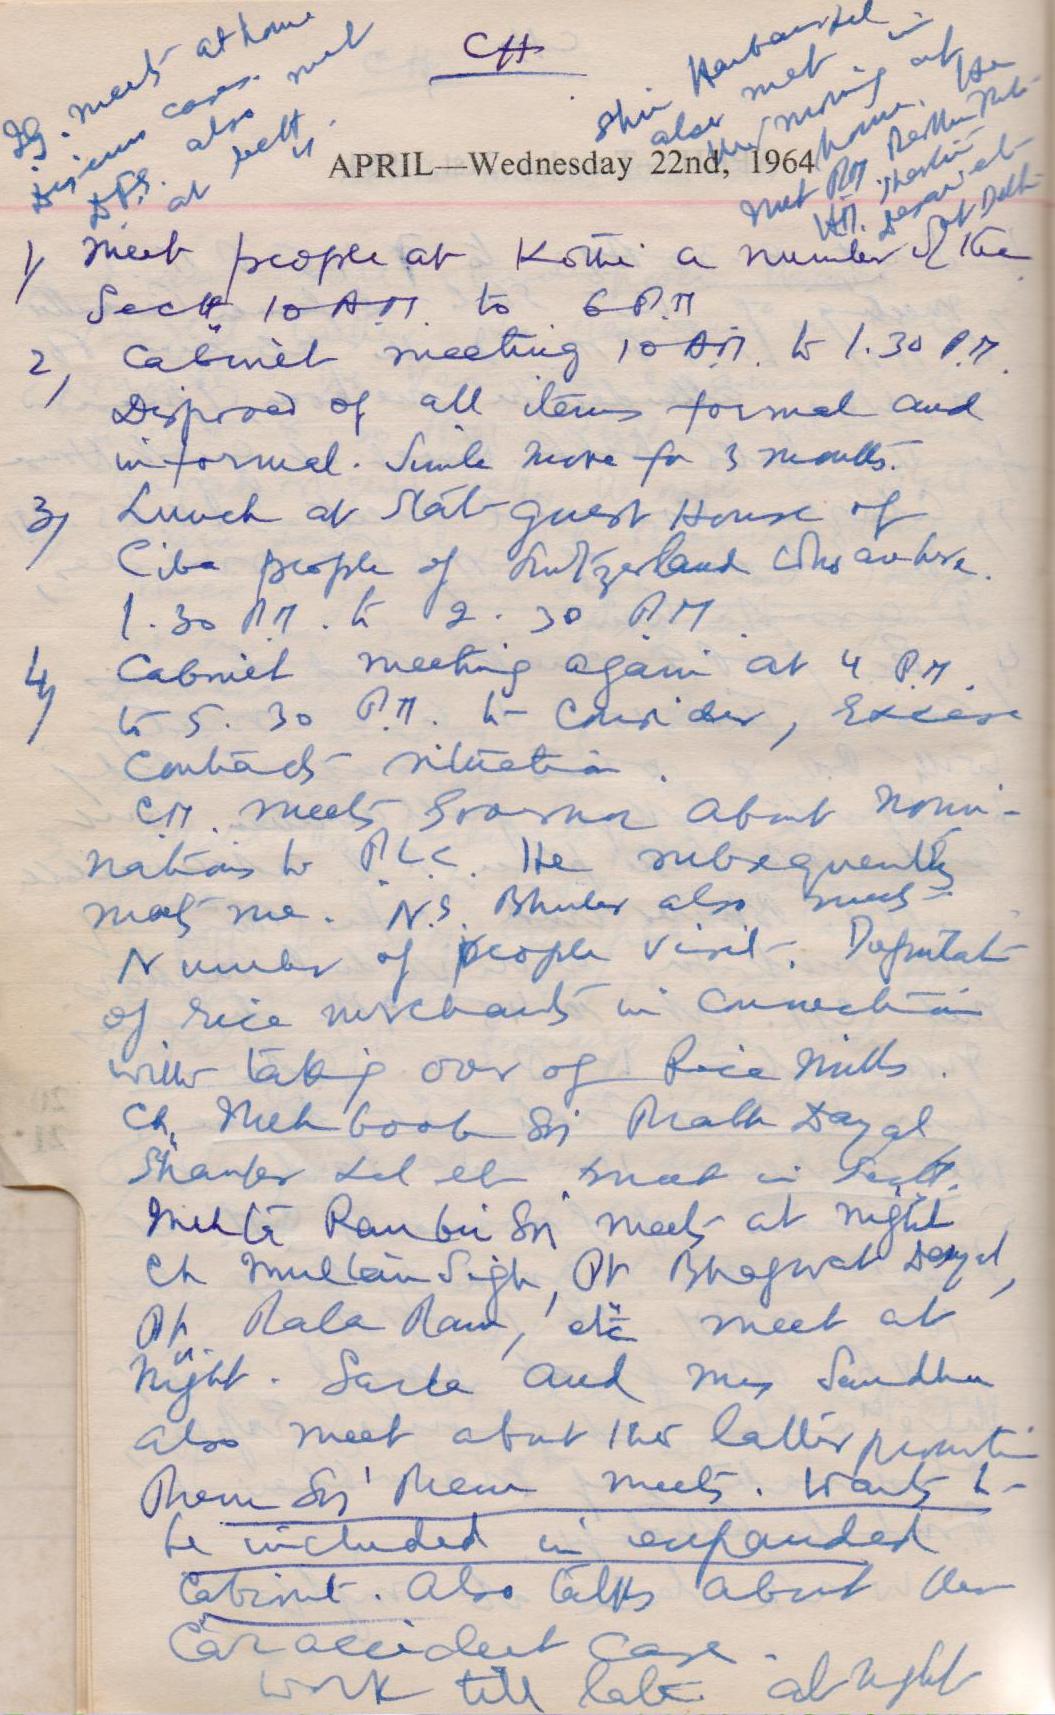 CH
IG. meets at home
Discuss cases.
DPS. also met
at Sectt.
Shri Harbans Lal
also met in
the morning at
home. He
met PM
HM.
at Delhi
APRIL—Wednesday 22nd, 1964
1) Meet people at Kothi a number of the
Sectt 10 A.M. to 6 P.M
2) Cabinet meeting 10 A.M. to 1.30 P.M.
Disposed of all items formal and
informal. more for 3 months.
3) Lunch at State Guest House of
Ciba people of Switzerland who are here.
1.30 P.M. to 2.30 P.M.
4) Cabinet meeting again at 4 P.M.
to 5.30 P.M. to consider, Excise
Contracts situation.
C.M. meets Governor about nomi-
nations to P.L.C. He subsequently
meets me. N.S. also meets.
Number of people visit. Deputat
of rice merchants in connection
with taking over of Rice Mills.
Ch. Mehboob Sn Ralla Dayal
Shanker Lal etc meet in Sectt.
Mehta Ranbir Sn meets at night
Ch Multan Singh, Pt Bhagwat Dayal,
Pt. Rala Ram, etc meet at
night. Sarla and Mrs Sandhu
also meet about the latter promoti
Prem Sn Prem meets. Wants to
be included in expanded
Cabinet. Also talks about the
Car accident case.
Work till late at night